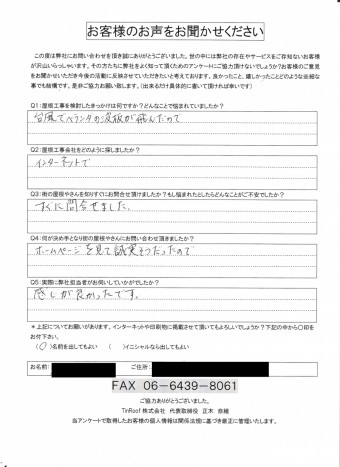 お客様のお声をお聞かせください
この度は弊社にお問い合わせを頂き誠にありがとうございました。世の中には弊社の存在やサービスをご存知ないお客様
が沢山いらっしゃいます。その方たちに弊社をよく知って頂くためのアンケートにご協力頂けないでしょうか?お客様のご意見
をお聞かせいただき今後の活動に反映させていただきたいと考えております。良かったこと、嬉しかったことどのような些細な
事でも結構です。是非ご協力お願い致します。(出来るだけ具体的に書いて頂ければ幸いです)
Q1:屋根工事を検討したきっかけは何ですか?どんなことで悩まれていましたか?
台風でベランダの波板が飛んだので
Q2:屋根工事会社をどのように探しましたか?
インターネットで
Q3:街の屋根やさんを知りすぐにお問合せ頂けましたか?もし悩まれたとしたらどんなことがご不安でしたか?
すぐに問合せました。
Q4:何が決め手となり街の屋根やさんにお問い合わせ頂きましたか?
ホームページを見て誠実そうだったので
Q5:実際に弊社担当者がお伺いしていかがでしたか?
感じが良かったです。
*上記についてお願いがあります。インターネットや印刷物に掲載させて頂いてもよろしいでしょうか?下記の中から〇印を
お付下さい。
(〇)名前を出してもよい ( )イニシャルなら出してもよい
お名前: ご住所:
FAX 06-6439-8061
ご協力ありがとうございました。
TinRoof 株式会社 代表取締役 正木 奈緒
当アンケートで取得したお客様の個人情報は関係法規に基づき厳正に管理いたします。